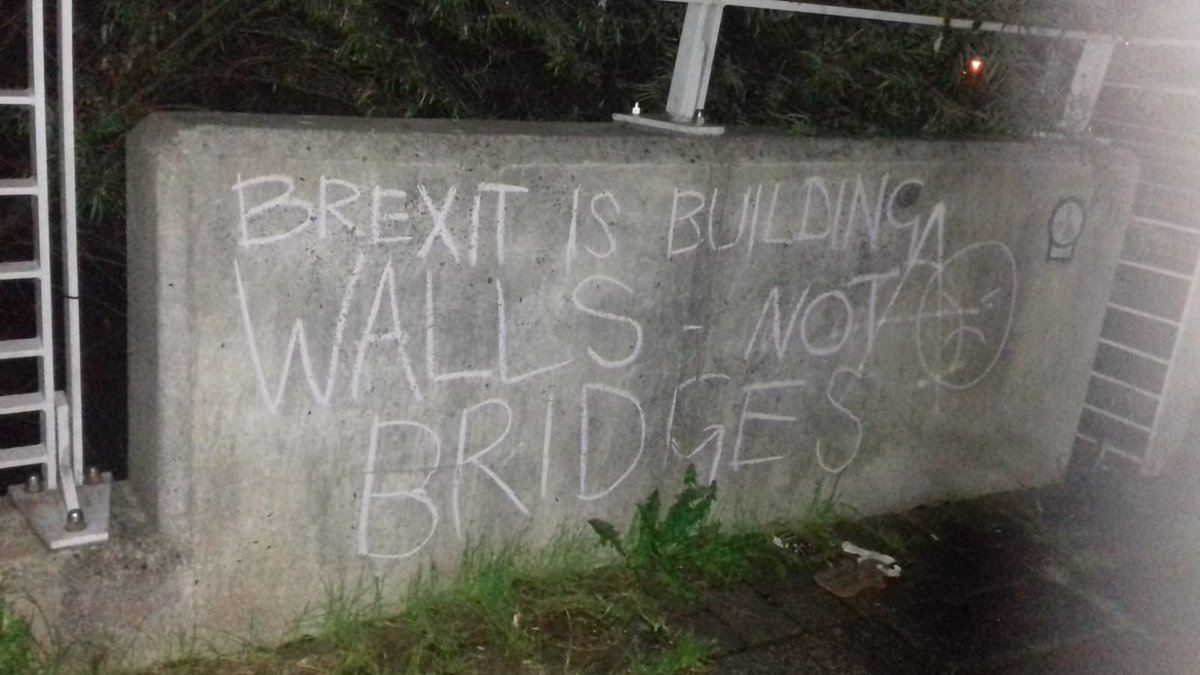 BREXIT IS BUILDING
WALLS - NOT
BRIDGES